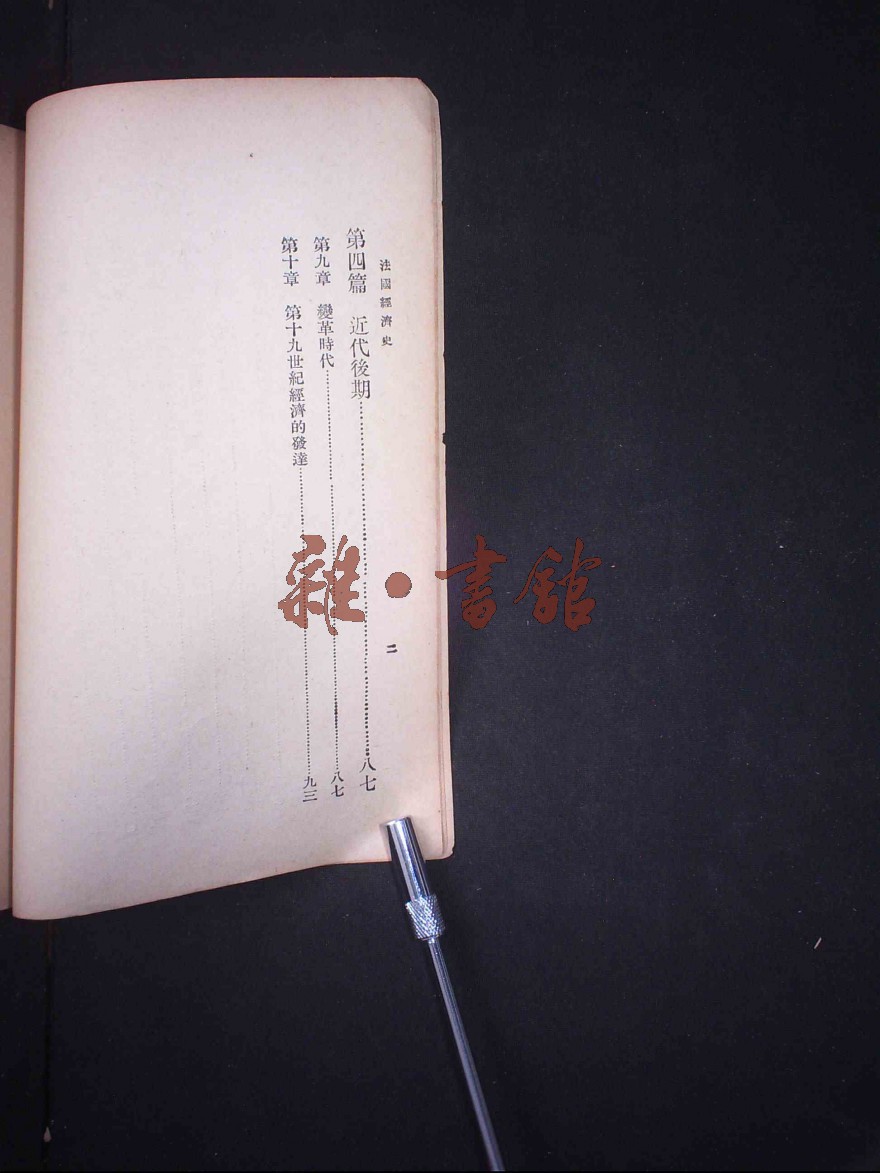 法國經濟史
二
第四篇　近代後期……八七
第九章　變革時代……八七
第十章　第十九世紀經濟的發達……九三
雜·書館